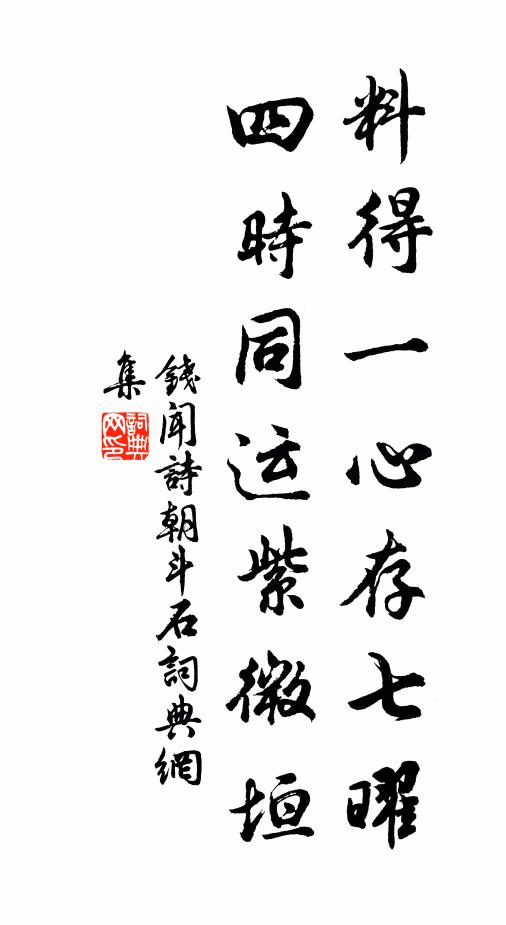 料得一心存七曜
四時同运紫微垣
錢聞詩朝斗石詞典網
集
詞典
网印